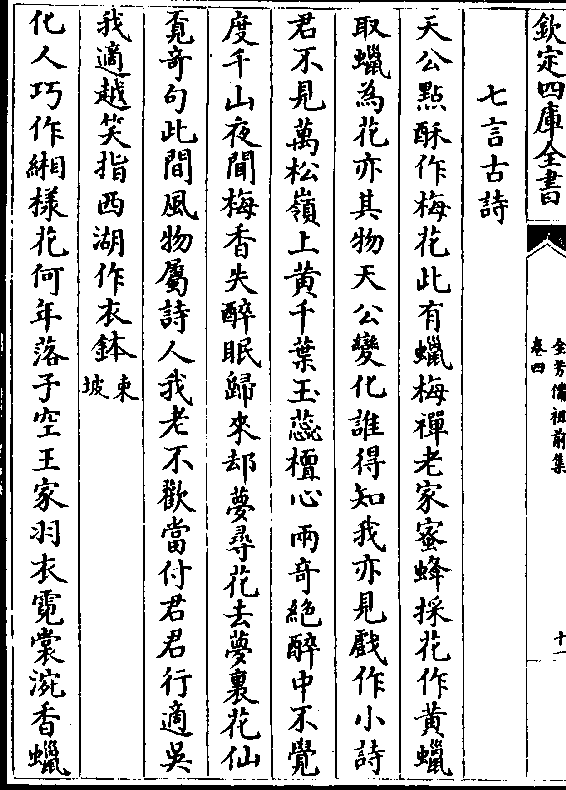 欽定四庫全書
全芳備祖前集
卷四
十一
七言古詩
天公點酥作梅花此有蠟梅禪老家蜜蜂採花作黄蠟
取蠟為花亦其物天公變化誰得知我亦見戲作小詩
君不見萬松嶺上黄千葉玉蕊檀心兩奇絶醉中不覺
度千山夜聞梅香失醉眠歸來却夢尋花去夢裏花仙
覔奇句此間風物屬詩人我老不飲當付君君行適吳
我適越笑指西湖作衣鉢東坡
化人巧作緗様花何年落子空王家羽衣霓裳涴香蠟